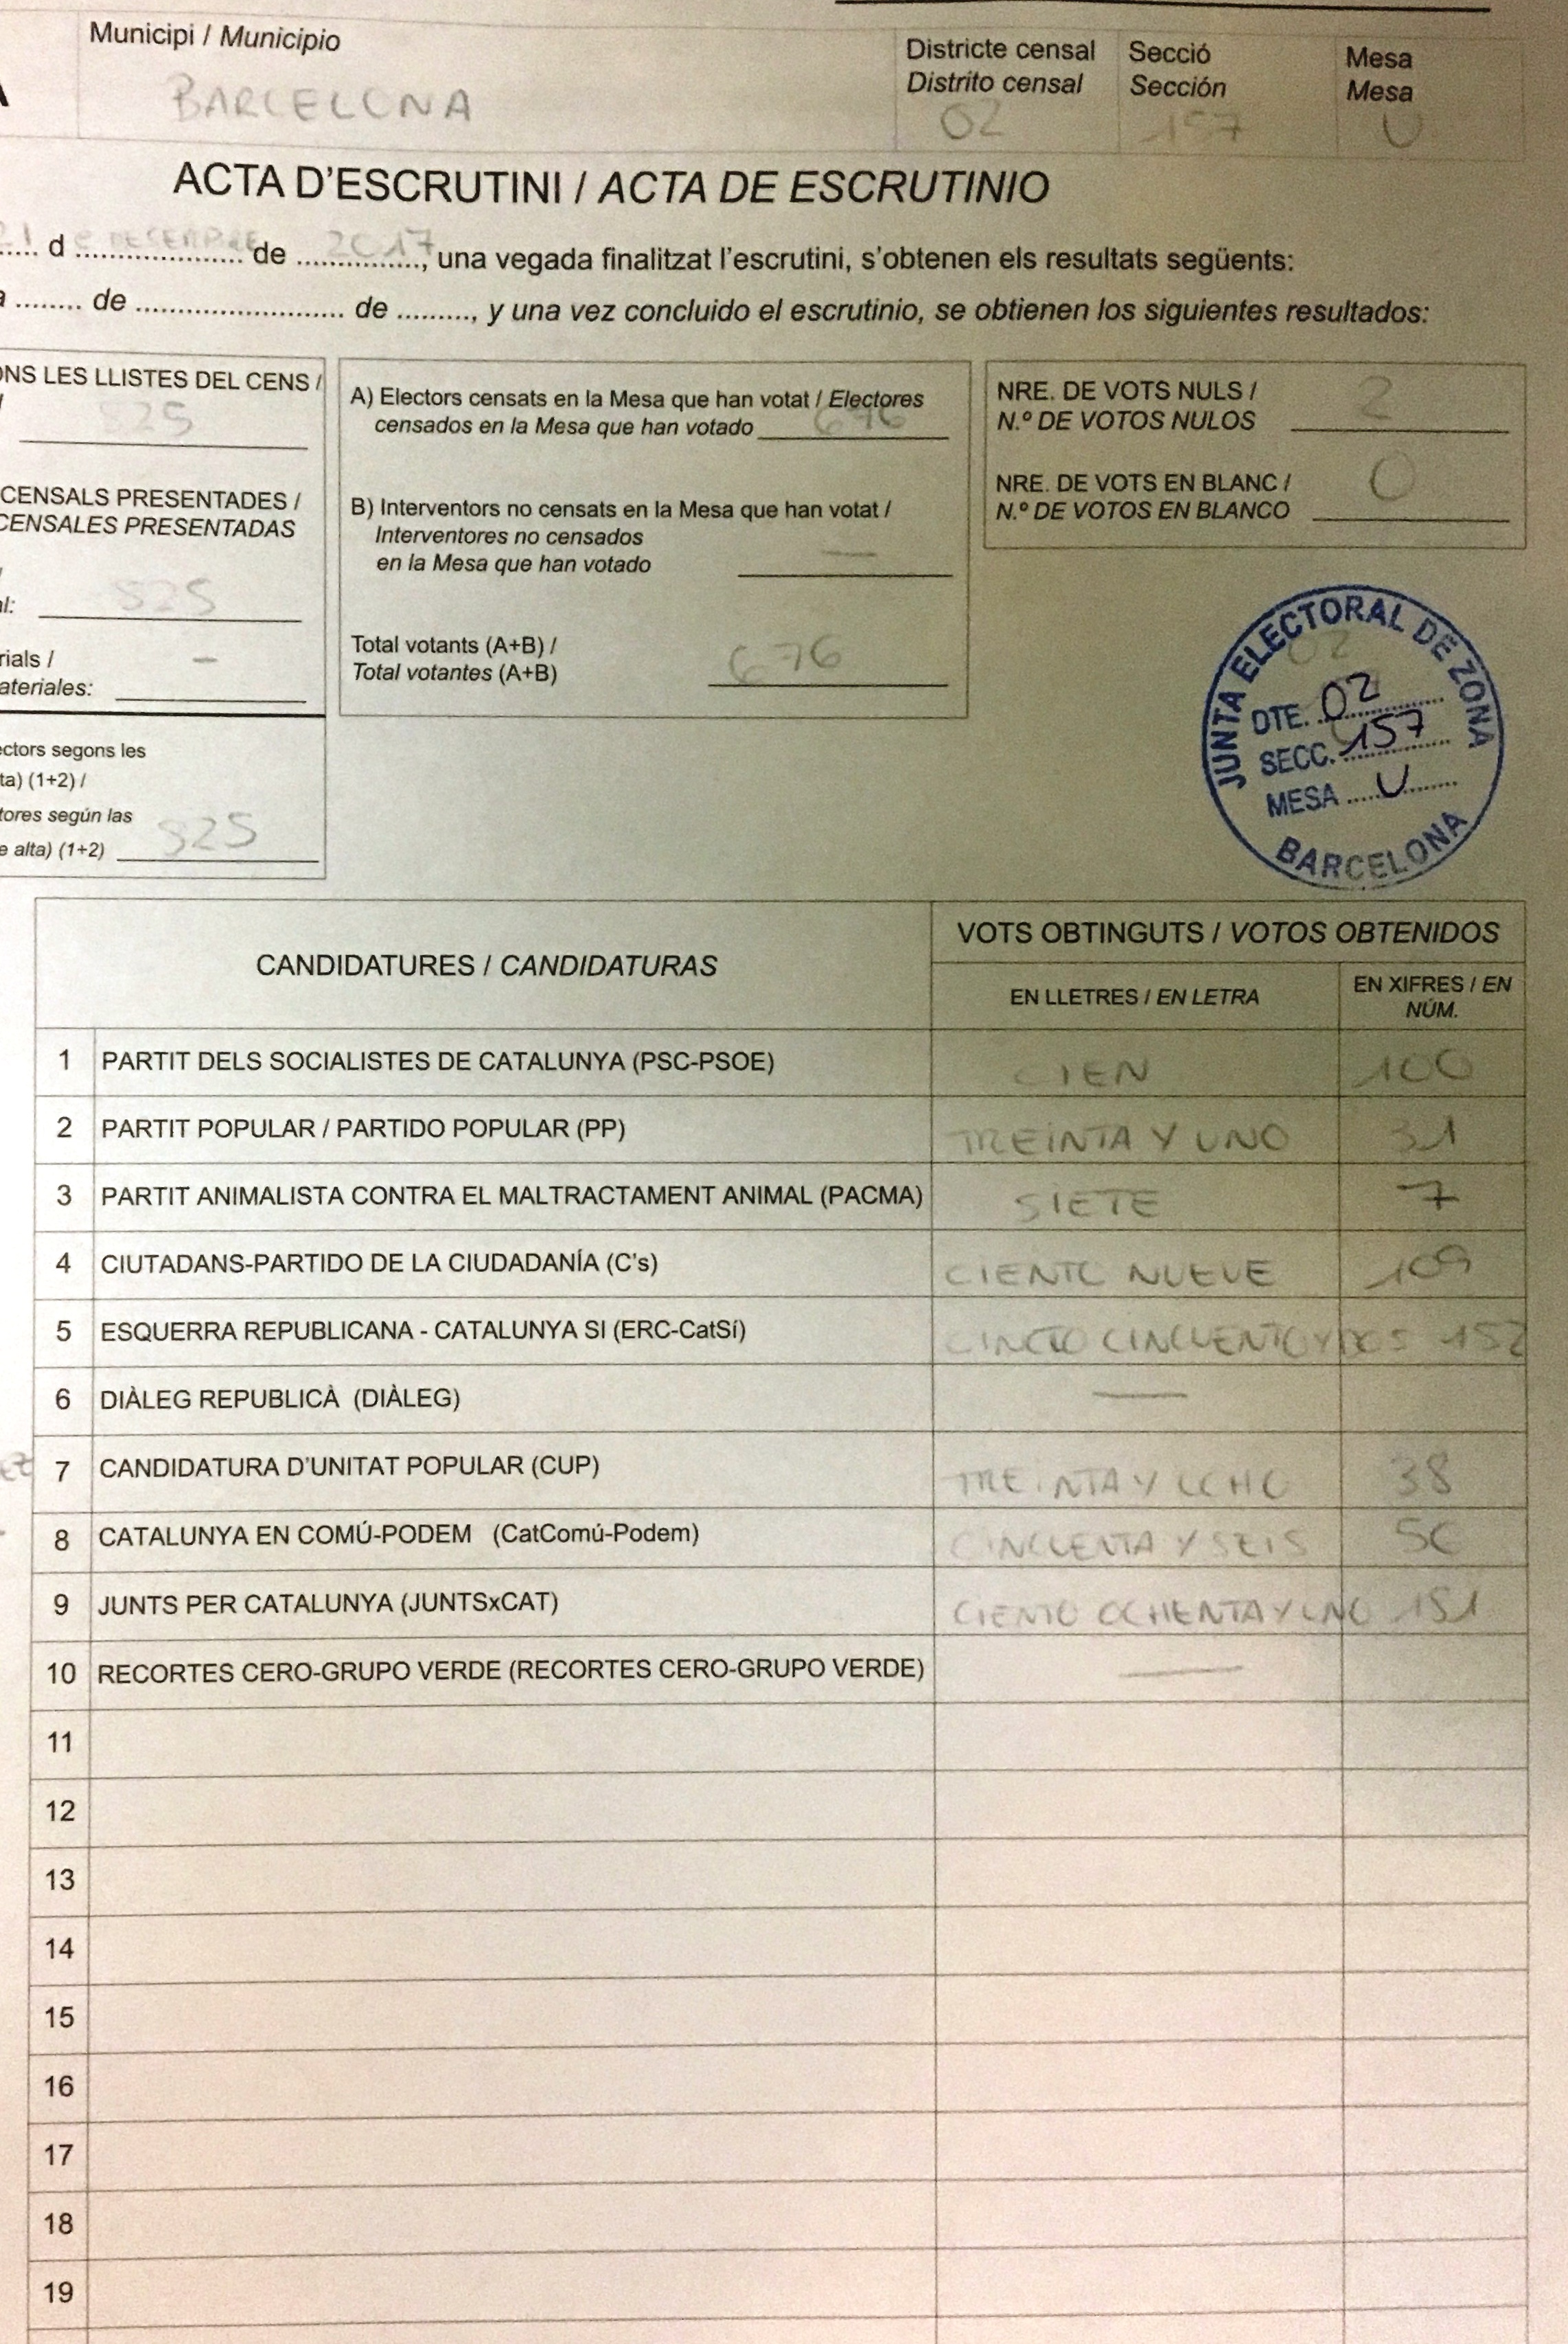 Municipi / Municipio
BARCELONA
Districte censal
Distrito censal
02
Secció
Sección
157
Mesa
Mesa
U
ACTA D'ESCRUTINI / ACTA DE ESCRUTINIO
..... d DESEMBRE de 2017, una vegada finalitzat l'escrutini, s'obtenen els resultats següents:
a ........ de ......................... de ........., y una vez concluido el escrutinio, se obtienen los siguientes resultados:
ONS LES LLISTES DEL CENS /
825
CENSALS PRESENTADES /
CENSALES PRESENTADAS
al: 825
rials /
ateriales: –
ectors segons les
ta) (1+2) /
tores según las
e alta) (1+2) 825
A) Electors censats en la Mesa que han votat / Electores
censados en la Mesa que han votado 676
B) Interventors no censats en la Mesa que han votat /
Interventores no censados
en la Mesa que han votado —
Total votants (A+B) /
Total votantes (A+B) 676
NRE. DE VOTS NULS /
N.º DE VOTOS NULOS 2
NRE. DE VOTS EN BLANC /
N.º DE VOTOS EN BLANCO 0
JUNTA ELECTORAL DE ZONA
DTE. 02
SECC. 157
MESA U
BARCELONA
CANDIDATURES / CANDIDATURAS
VOTS OBTINGUTS / VOTOS OBTENIDOS
EN LLETRES / EN LETRA
EN XIFRES / EN
NÚM.
1 PARTIT DELS SOCIALISTES DE CATALUNYA (PSC-PSOE) CIEN 100
2 PARTIT POPULAR / PARTIDO POPULAR (PP) TREINTA Y UNO 31
3 PARTIT ANIMALISTA CONTRA EL MALTRACTAMENT ANIMAL (PACMA) SIETE 7
4 CIUTADANS-PARTIDO DE LA CIUDADANÍA (C's) CIENTO NUEVE 109
5 ESQUERRA REPUBLICANA - CATALUNYA SI (ERC-CatSí) Y DOS 152
6 DIÀLEG REPUBLICÀ (DIÀLEG) —
7 CANDIDATURA D'UNITAT POPULAR (CUP) TREINTA Y OCHO 38
8 CATALUNYA EN COMÚ-PODEM (CatComú-Podem) CINCUENTA Y SEIS 56
9 JUNTS PER CATALUNYA (JUNTSxCAT) CIENTO OCHENTA Y UNO 181
10 RECORTES CERO-GRUPO VERDE (RECORTES CERO-GRUPO VERDE) —
11
12
13
14
15
16
17
18
19